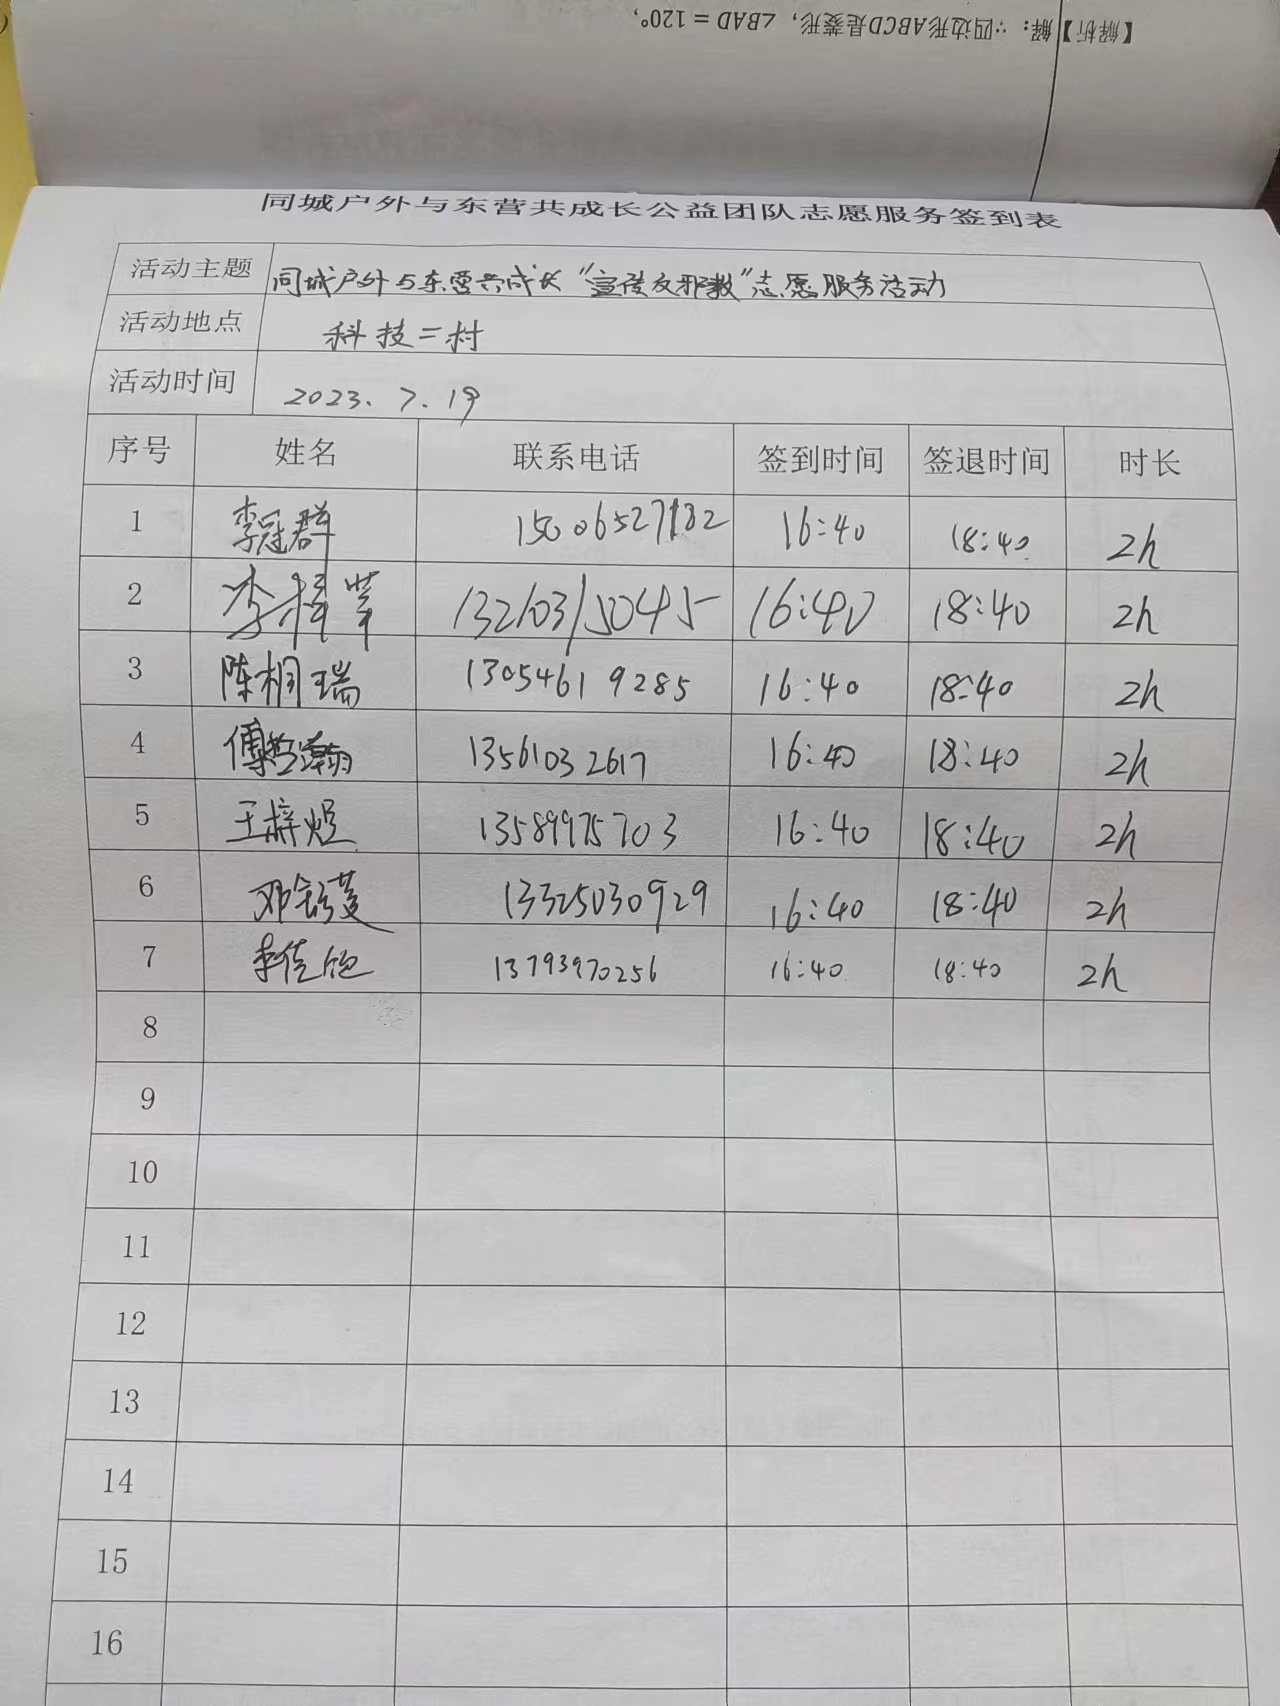 【解析】解：∵四边形ABCD是菱形，∠BAD = 120°，
同城户外与东营共成长公益团队志愿服务签到表
活动主题 同城户外与东营共成长“宣传反邪教”志愿服务活动
活动地点 科技二村
活动时间 2023.7.19
序号 姓名 联系电话 签到时间 签退时间 时长
1 李冠群 15006527182 16:40 18:40 2h
2 李梓苹 13210315045 16:40 18:40 2h
3 陈桐瑞 13054619285 16:40 18:40 2h
4 傅哲瀚 13561032617 16:40 18:40 2h
5 王梓煜 13589975703 16:40 18:40 2h
6 邓 13325030929 16:40 18:40 2h
7 李佳 13793970256 16:40 18:40 2h
8
9
10
11
12
13
14
15
16